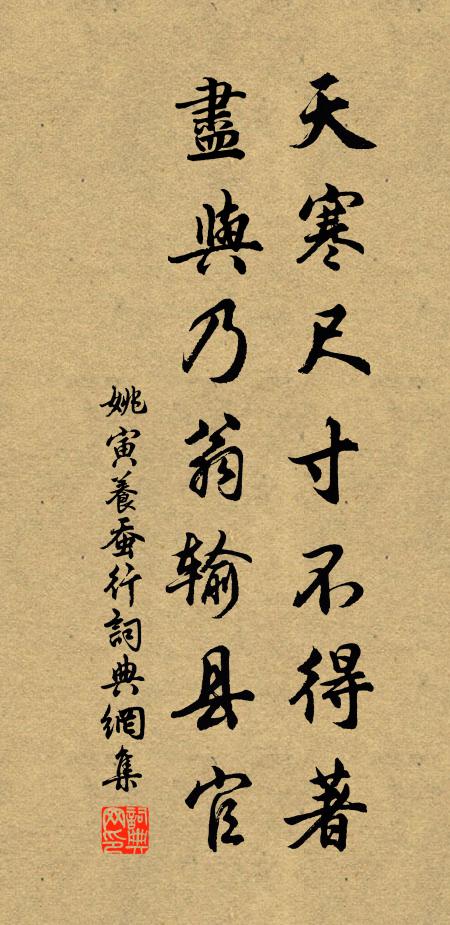 天寒尺寸不得著
盡與乃翁输县官
姚寅養蚕行詞典網集
詞典網印